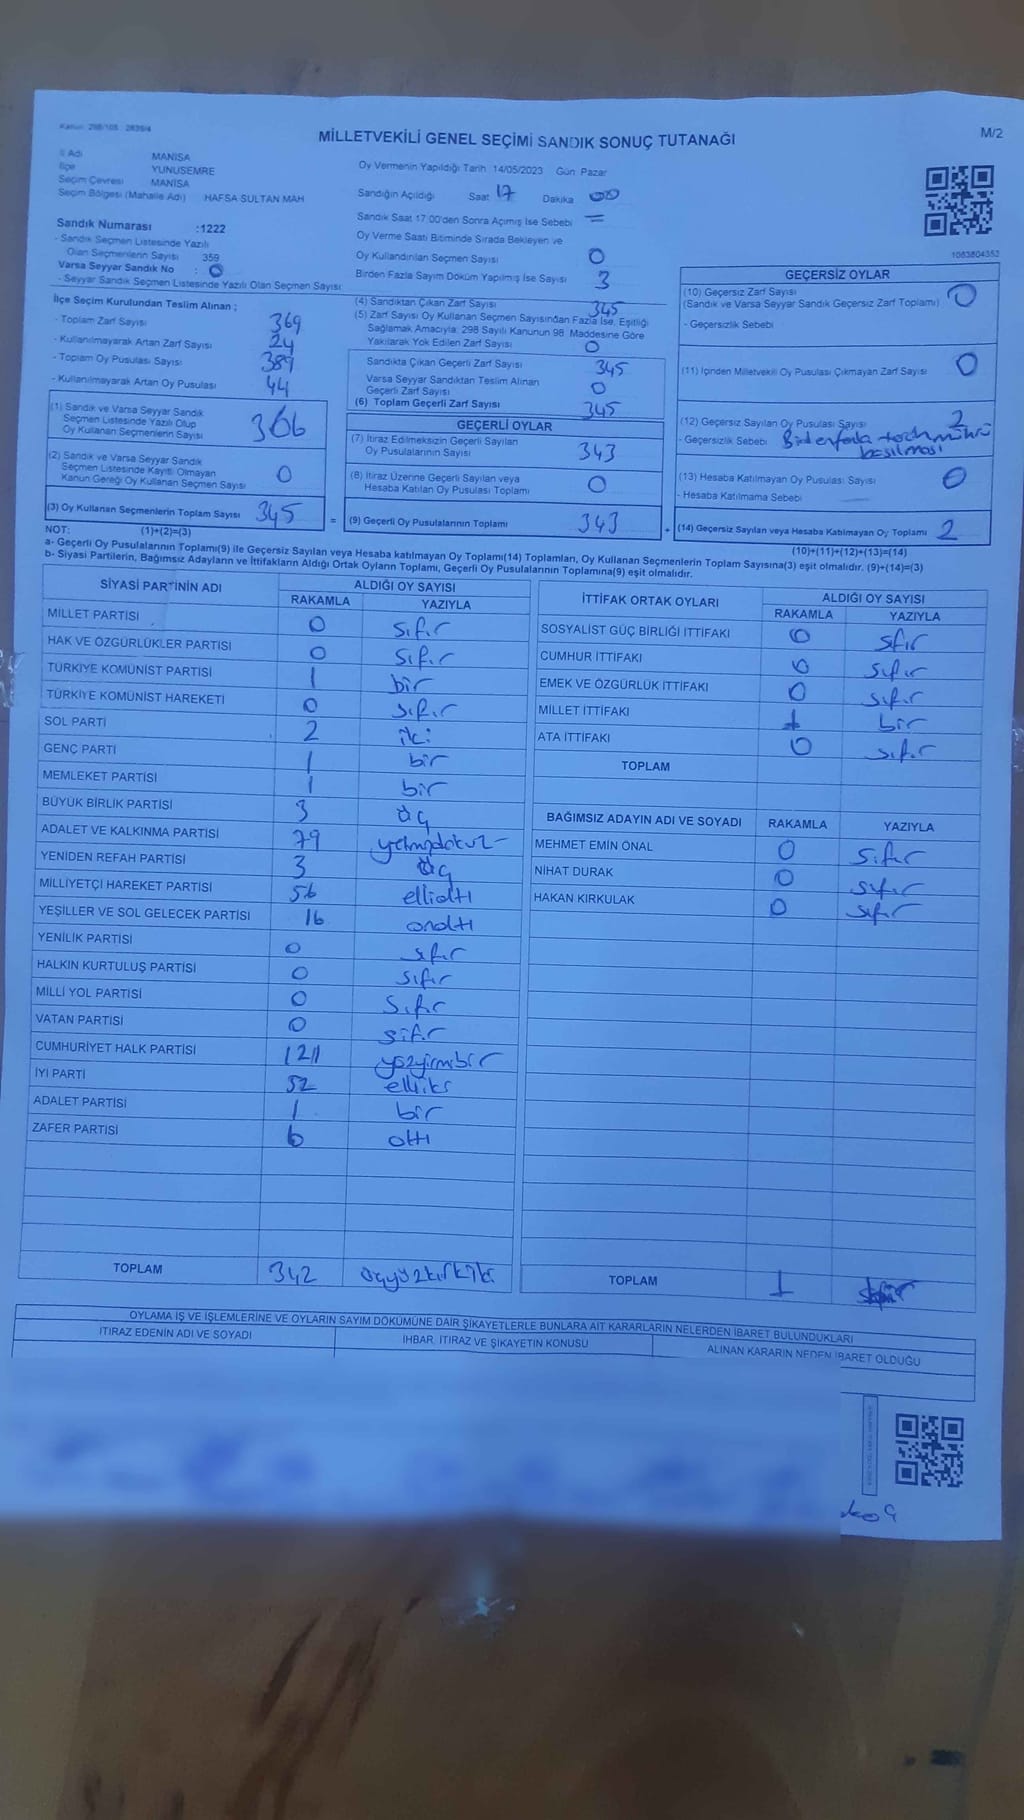 Kanun: 298/105 : 2839/4
MİLLETVEKİLİ GENEL SEÇİMİ SANDIK SONUÇ TUTANAĞI
M/2
İl Adı MANİSA
İlçe YUNUSEMRE
Seçim Çevresi MANİSA
Seçim Bölgesi (Mahalle Adı) HAFSA SULTAN MAH
Oy Vermenin Yapıldığı Tarih 14/05/2023 Gün Pazar
Sandığın Açıldığı Saat 17 Dakika 00
Sandık Saat 17:00'den Sonra Açılmış İse Sebebi =
Oy Verme Saati Bitiminde Sırada Bekleyen ve
Oy Kullandırılan Seçmen Sayısı 0
Birden Fazla Sayım Döküm Yapılmış İse Sayısı 3
1063804353
Sandık Numarası :1222
- Sandık Seçmen Listesinde Yazılı
Olan Seçmenlerin Sayısı 359
Varsa Seyyar Sandık No : 0
- Seyyar Sandık Seçmen Listesinde Yazılı Olan Seçmen Sayısı
İlçe Seçim Kurulundan Teslim Alınan ;
- Toplam Zarf Sayısı 369
- Kullanılmayarak Artan Zarf Sayısı 24
- Toplam Oy Pusulası Sayısı 389
- Kullanılmayarak Artan Oy Pusulası 44
(1) Sandık ve Varsa Seyyar Sandık
Seçmen Listesinde Yazılı Olup
Oy Kullanan Seçmenlerin Sayısı 366
(2) Sandık ve Varsa Seyyar Sandık
Seçmen Listesinde Kayıtlı Olmayan
Kanun Gereği Oy Kullanan Seçmen Sayısı 0
(3) Oy Kullanan Seçmenlerin Toplam Sayısı 345
(4) Sandıktan Çıkan Zarf Sayısı 345
(5) Zarf Sayısı Oy Kullanan Seçmen Sayısından Fazla İse, Eşitliği
Sağlamak Amacıyla: 298 Sayılı Kanunun 98. Maddesine Göre
Yakılarak Yok Edilen Zarf Sayısı 0
Sandıkta Çıkan Geçerli Zarf Sayısı 345
Varsa Seyyar Sandıktan Teslim Alınan
Geçerli Zarf Sayısı 0
(6) Toplam Geçerli Zarf Sayısı 345
GEÇERLİ OYLAR
(7) İtiraz Edilmeksizin Geçerli Sayılan
Oy Pusulalarının Sayısı 343
(8) İtiraz Üzerine Geçerli Sayılan veya
Hesaba Katılan Oy Pusulası Toplamı 0
= (9) Geçerli Oy Pusulalarının Toplamı 343
GEÇERSİZ OYLAR
(10) Geçersiz Zarf Sayısı 0
(Sandık ve Varsa Seyyar Sandık Geçersiz Zarf Toplamı)
- Geçersizlik Sebebi
(11) İçinden Milletvekili Oy Pusulası Çıkmayan Zarf Sayısı 0
(12) Geçersiz Sayılan Oy Pusulası Sayısı 2
- Geçersizlik Sebebi Birden fazla tercih mührü
basılması
(13) Hesaba Katılmayan Oy Pusulası Sayısı 0
- Hesaba Katılmama Sebebi
+ (14) Geçersiz Sayılan veya Hesaba Katılmayan Oy Toplamı 2
NOT: (1)+(2)=(3)
(10)+(11)+(12)+(13)=(14)
a- Geçerli Oy Pusulalarının Toplamı(9) ile Geçersiz Sayılan veya Hesaba katılmayan Oy Toplamı(14) Toplamları, Oy Kullanan Seçmenlerin Toplam Sayısına(3) eşit olmalıdır. (9)+(14)=(3)
b- Siyasi Partilerin, Bağımsız Adayların ve İttifakların Aldığı Ortak Oyların Toplamı, Geçerli Oy Pusulalarının Toplamına(9) eşit olmalıdır.
SİYASİ PARTİNİN ADI ALDIĞI OY SAYISI
RAKAMLA YAZIYLA
MİLLET PARTİSİ 0 sıfır
HAK VE ÖZGÜRLÜKLER PARTİSİ 0 sıfır
TÜRKİYE KOMÜNİST PARTİSİ 1 bir
TÜRKİYE KOMÜNİST HAREKETİ 0 sıfır
SOL PARTİ 2 iki
GENÇ PARTİ 1 bir
MEMLEKET PARTİSİ 1 bir
BÜYÜK BİRLİK PARTİSİ 3 üç
ADALET VE KALKINMA PARTİSİ 79 yetmişdokuz
YENİDEN REFAH PARTİSİ 3 üç
MİLLİYETÇİ HAREKET PARTİSİ 56 ellialtı
YEŞİLLER VE SOL GELECEK PARTİSİ 16 onaltı
YENİLİK PARTİSİ 0 sıfır
HALKIN KURTULUŞ PARTİSİ 0 sıfır
MİLLİ YOL PARTİSİ 0 sıfır
VATAN PARTİSİ 0 sıfır
CUMHURİYET HALK PARTİSİ 121 yüzyirmibir
İYİ PARTİ 52 elliiki
ADALET PARTİSİ 1 bir
ZAFER PARTİSİ 6 altı
TOPLAM 342 üçyüzkırkiki
İTTİFAK ORTAK OYLARI ALDIĞI OY SAYISI
RAKAMLA YAZIYLA
SOSYALİST GÜÇ BİRLİĞİ İTTİFAKI 0 sıfır
CUMHUR İTTİFAKI 0 sıfır
EMEK VE ÖZGÜRLÜK İTTİFAKI 0 sıfır
MİLLET İTTİFAKI 1 bir
ATA İTTİFAKI 0 sıfır
TOPLAM
BAĞIMSIZ ADAYIN ADI VE SOYADI RAKAMLA YAZIYLA
MEHMET EMİN ÖNAL 0 sıfır
NİHAT DURAK 0 sıfır
HAKAN KIRKULAK 0 sıfır
TOPLAM 1
OYLAMA İŞ VE İŞLEMLERİNE VE OYLARIN SAYIM DÖKÜMÜNE DAİR ŞİKAYETLERLE BUNLARA AİT KARARLARIN NELERDEN İBARET BULUNDUKLARI
İTİRAZ EDENİN ADI VE SOYADI İHBAR, İTİRAZ VE ŞİKAYETİN KONUSU ALINAN KARARIN NEDEN İBARET OLDUĞU